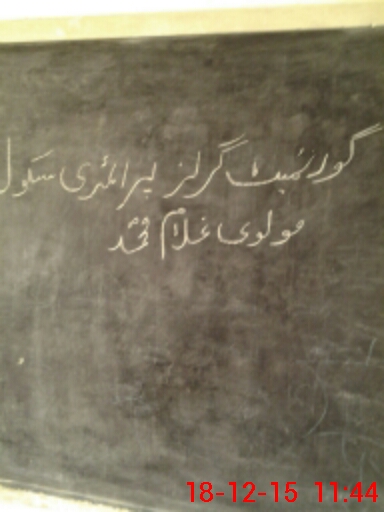 گورنمنٹ گرلز پرائمری سکول
مولوی غلام محمد
18-12-15 11:44